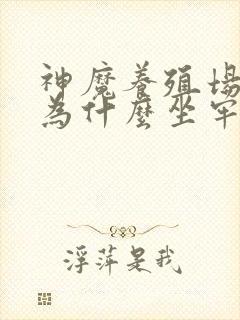 神魔養殖場
為什麼坐牢
浮萍是我